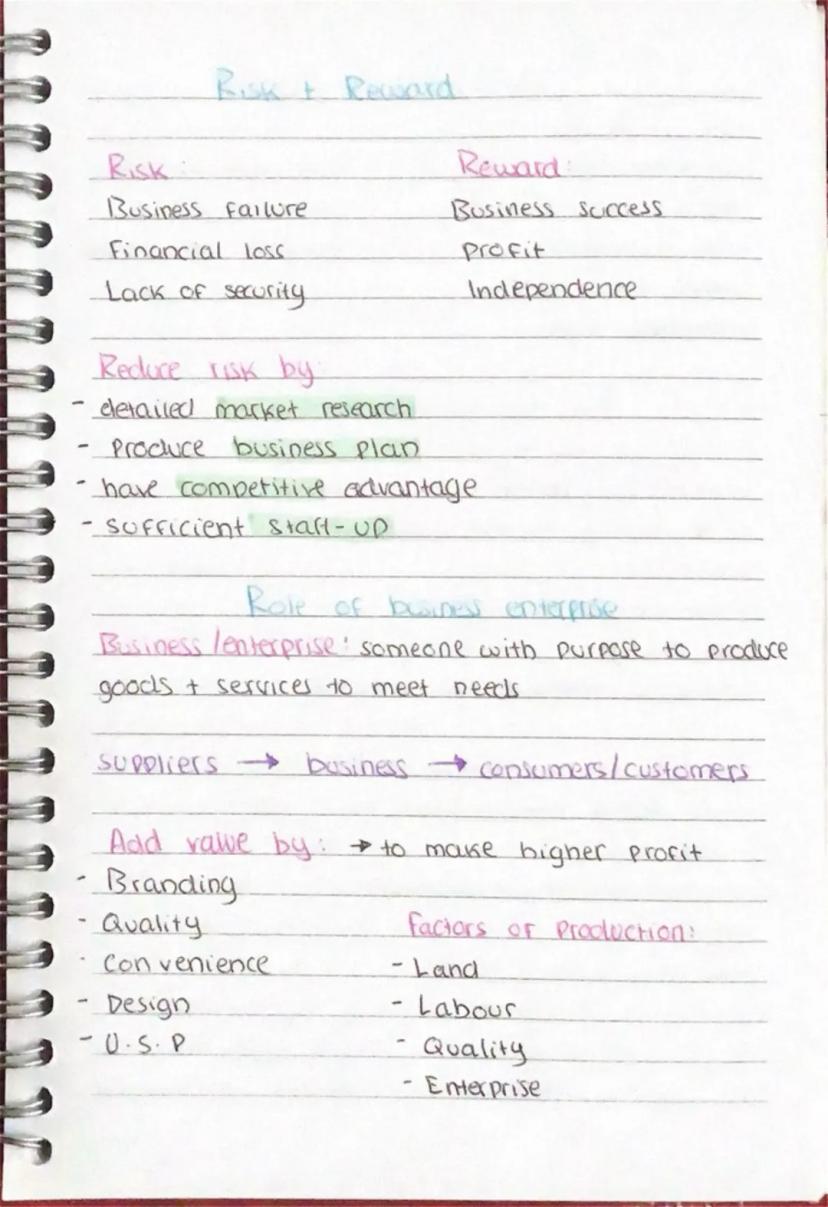 Risk + Reward
Risk: Reward:
Business failure Business success
Financial loss profit
Lack of security Independence
Reduce risk by:
- detailed market research
- produce business plan
- have competitive advantage
- sufficient start-up
Role of business enterprise
Business/enterprise: someone with purpose to produce
goods + services to meet needs
suppliers → business → consumers/customers
Add value by: → to make higher profit
- Branding
- Quality Factors of production:
- convenience - Land
- Design - Labour
- U.S.P - Quality
- Enterprise